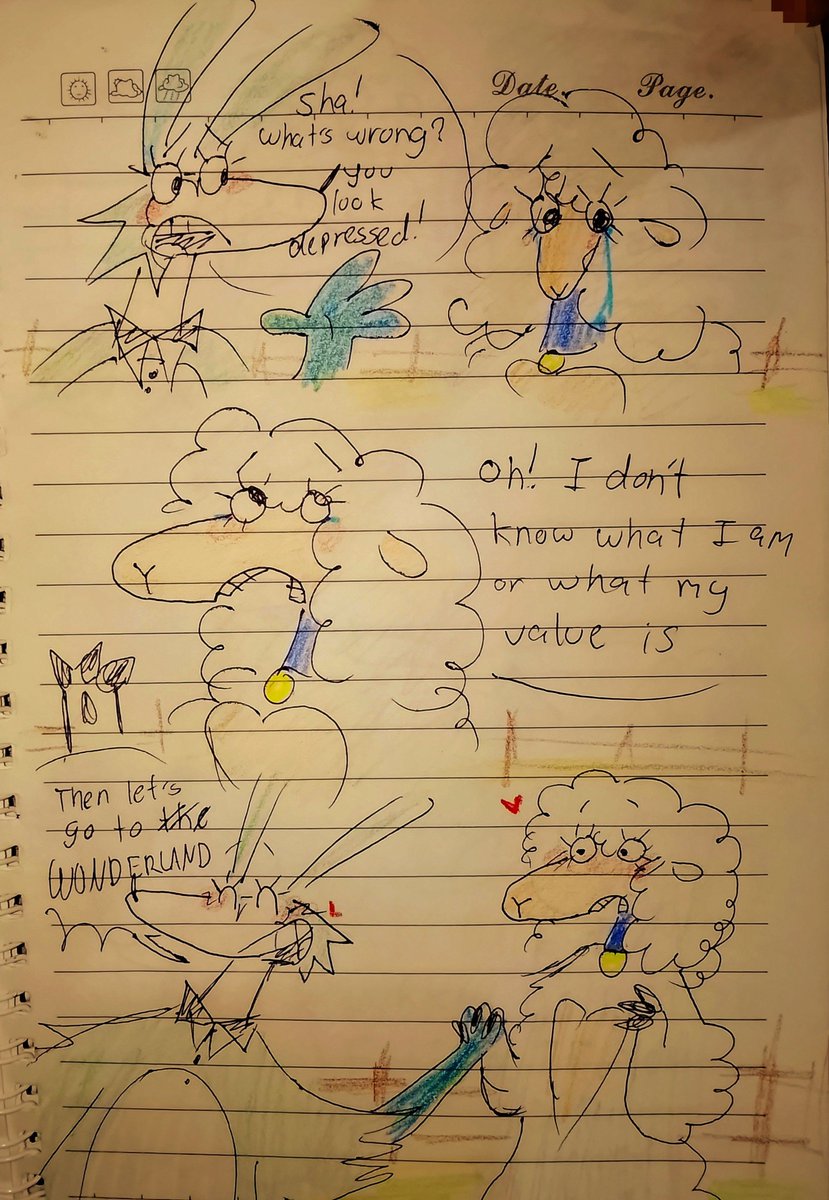 Date. Page.
Sha!
what's wrong?
you
look
depressed!
Oh! I don't
know what I am
or what my
value is
Then let's
go to the
WONDERLAND